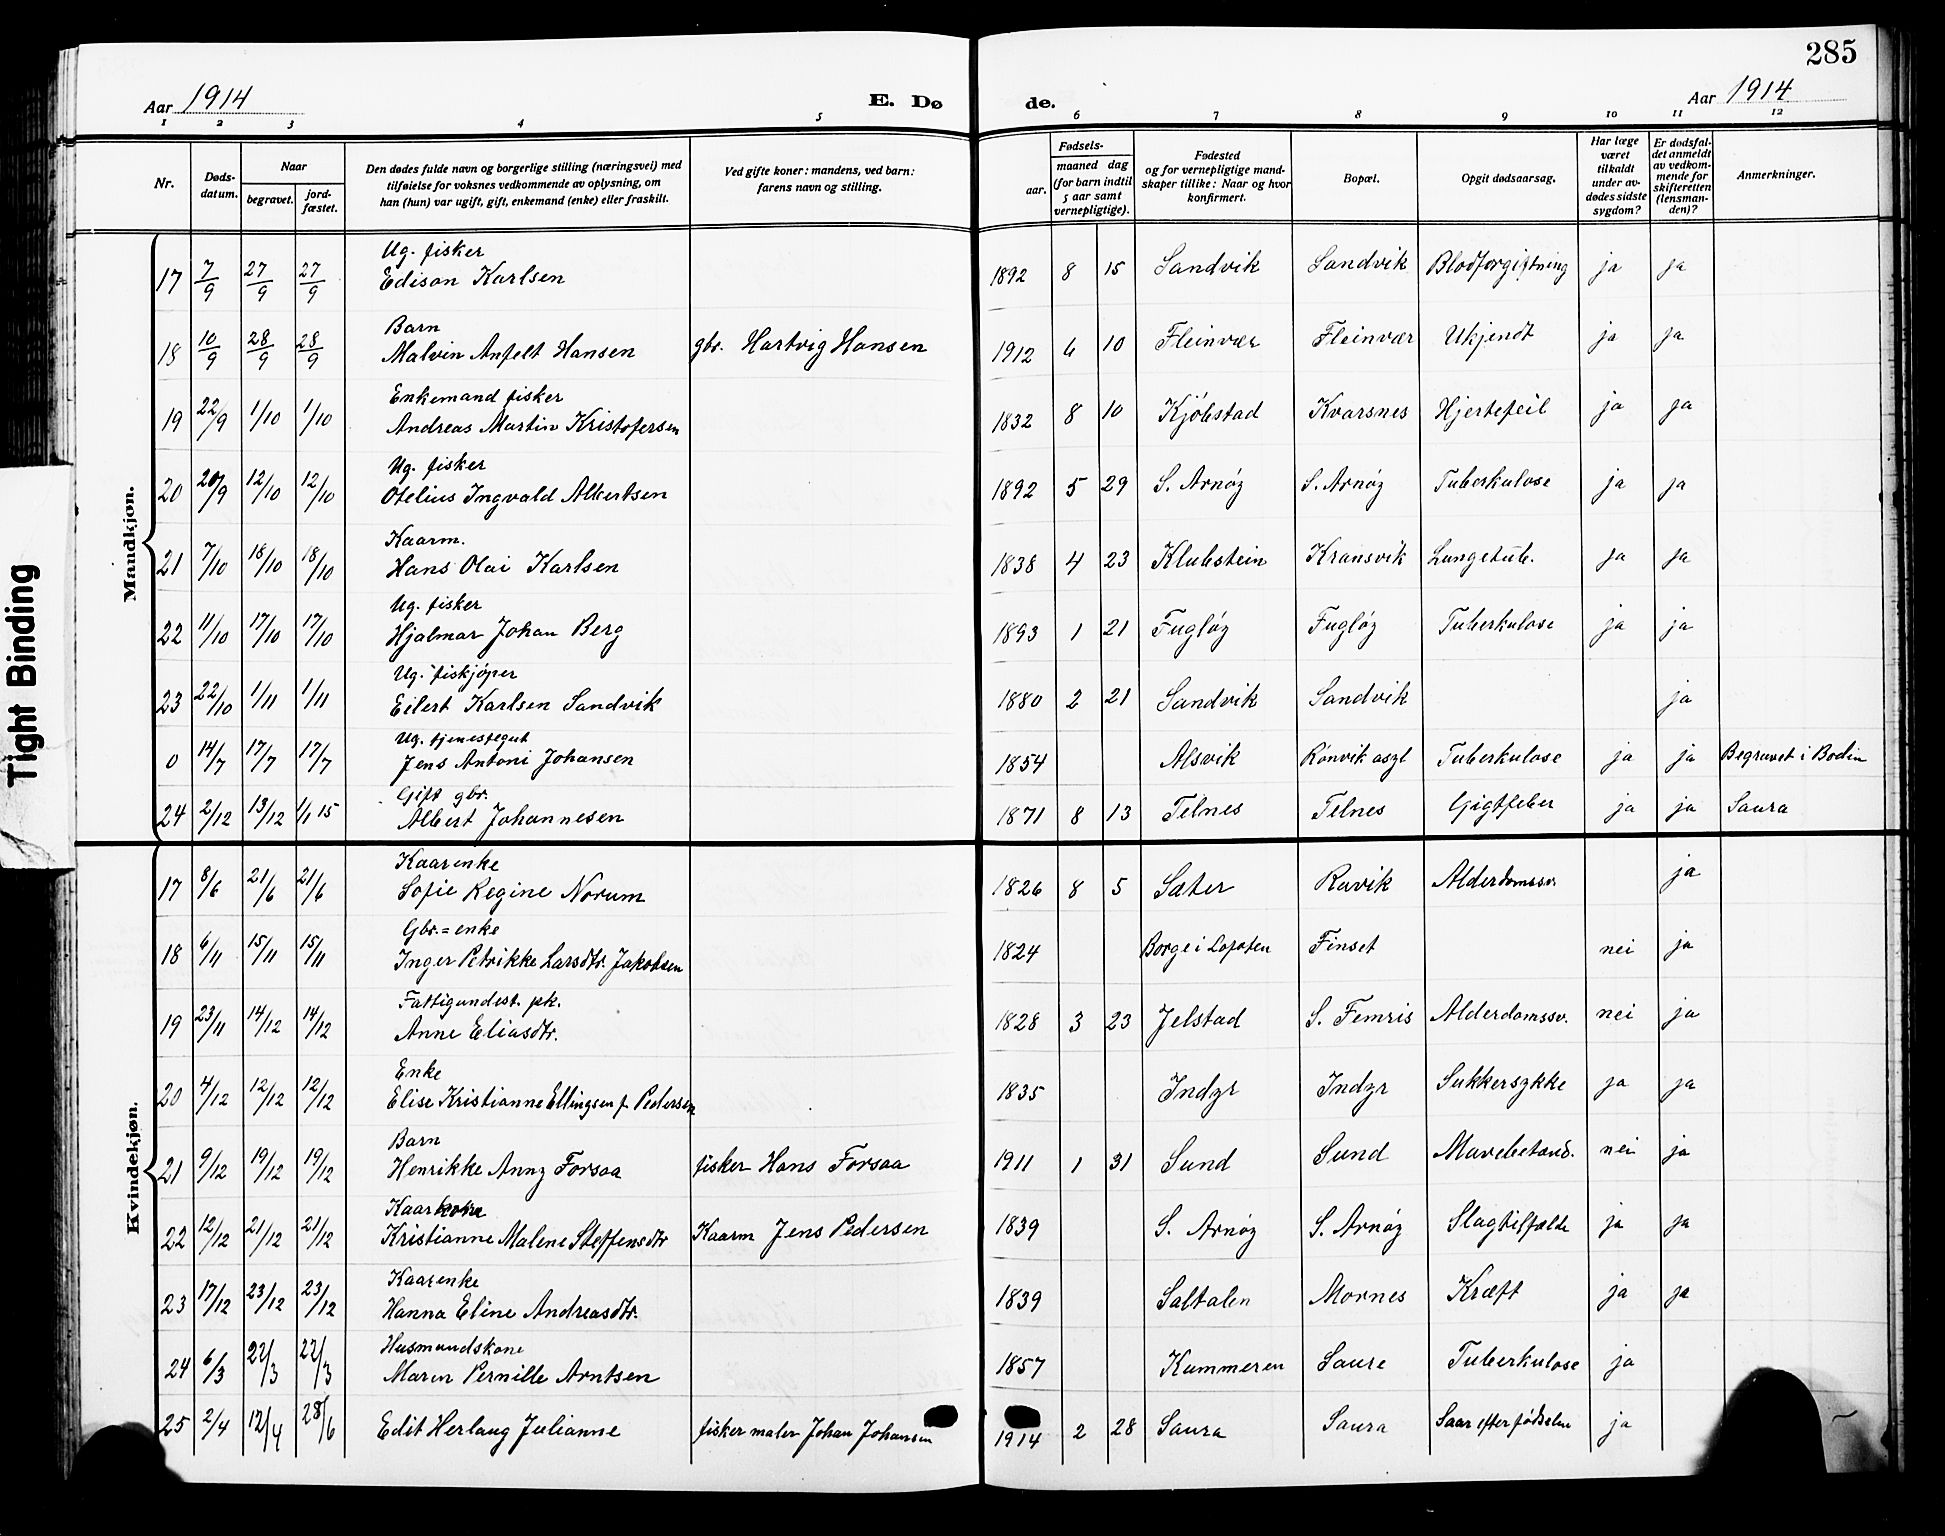 285
Aar 1914 E. Dø de. Aar 1914
1 2 3 4 5 6 7 8 9 10 11 12
Nr.
Døds-
datum.
Naar
begravet.
jord-
fæstet.
Den dødes fulde navn og borgerlige stilling (næringsvei) med
tilføielse for voksnes vedkommende av oplysning, om
han (hun) var ugift, gift, enkemand (enke) eller fraskilt.
Ved gifte koner: mandens, ved barn:
farens navn og stilling.
Fødsels-
aar.
maaned dag
(for barn indtil
5 aar samt
vernepligtige).
Fødested
og for vernepligtige mand-
skaper tillike: Naar og hvor
konfirmert.
Bopæl.
Opgit dødsaarsag.
Har læge
været
tilkaldt
under av-
dødes sidste
sygdom?
Er dødsfal-
det anmeldt
av vedkom-
mende for
skifteretten
(lensman-
den)?
Anmerkninger.
Tight Binding
Mandkjøn.
Ug. fisker
17 7/9 27/9 27/9 Edison Karlsen 1892 8 15 Sandvik Sandvik Blodforgiftning ja ja
Barn
18 10/9 28/9 28/9 Malvin Anfelt Hansen gbr. Hartvig Hansen 1912 6 10 Fleinvær Fleinvær Ukjendt ja ja
Enkemand fisker
19 22/9 1/10 1/10 Andreas Martin Kristofersen 1832 8 10 Kjøbstad Kvarsnes Hjertefeil ja ja
Ug. fisker
20 20/9 12/10 12/10 Otelius Ingvald Albertsen 1892 5 29 S. Arnøy S. Arnøy Tuberkulose ja ja
Kaarm.
21 7/10 18/10 18/10 Hans Olai Karlsen 1838 4 23 Klubstein Kransvik Lungetub. ja ja
Ug. fisker
22 11/10 17/10 17/10 Hjalmar Johan Berg 1893 1 21 Fugløy Fugløy Tuberkulose ja ja
Ug. fiskjøper
23 22/10 1/11 1/11 Eilert Karlsen Sandvik 1880 2 21 Sandvik Sandvik ja
Ug. tjenestegut
0 14/7 17/7 17/7 Jens Antoni Johansen 1854 Alsvik Rønvik asyl Tuberkulose ja ja Begravet i Bodin
Gift gbr.
24 2/12 13/12 1/1 15 Albert Johannesen 1871 8 13 Telnes Telnes Gigtfeber ja ja Saura
Kvindekjøn.
Kaarenke
17 8/6 21/6 21/6 Sofie Regine Norum 1826 8 5 Sæter Ravik Alderdomssv. ja
Gbr.=enke
18 6/11 15/11 15/11 Inger Petrikke Larsdtr. Jakobsen 1824 Borge i Lofoten Finset nei ja
Fattigunderst. pk.
19 23/11 14/12 14/12 Anne Eliasdtr. 1828 3 23 Jelstad S. Femris Alderdomssv. nei ja
Enke
20 4/12 12/12 12/12 Elise Kristianne Ellingsen f. Pedersen 1835 Indyr Indyr Sukkersykke ja ja
Barn
21 9/12 19/12 19/12 Henrikke Anny Forsaa fisker Hans Forsaa 1911 1 31 Sund Sund Mavebetænd. nei ja
Kaarkone
22 12/12 21/12 21/12 Kristianne Malene Steffensdtr Kaarm Jens Pedersen 1839 S. Arnøy S. Arnøy Slagtilfælde ja ja
Kaarenke
23 17/12 23/12 23/12 Hanna Eline Andreasdtr. 1839 Saltalen Mornes Kræft ja ja
Husmandskone
24 6/3 22/3 22/3 Maren Pernille Arntsen 1857 Kammeren Saure Tuberkulose ja
25 2/4 12/4 28/6 Edit Herlaug Julianne fisker maler Johan Johansen 1914 2 28 Saura Saura Saar efter fødselen ja